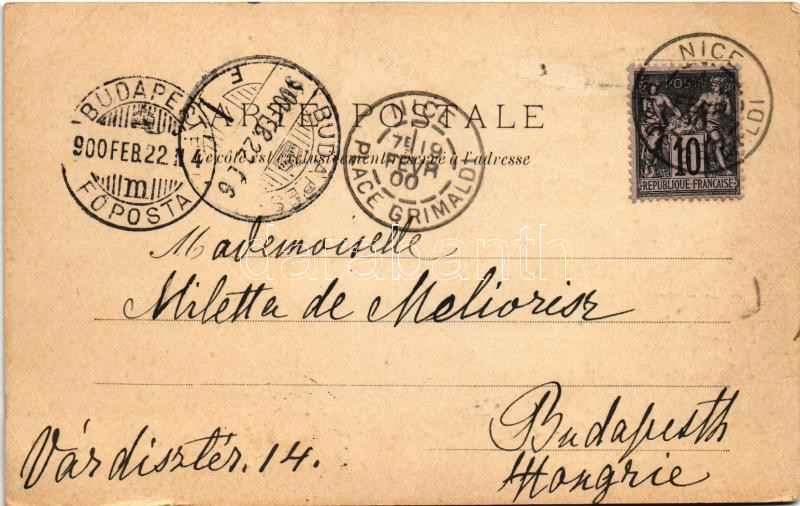 CARTE POSTALE
Ce côté est exclusivement réservé à l'adresse
BUDAPEST
900 FEB. 22.
m
FŐPOSTA
BUDAPEST
900 FEB. 22
NICE
7E 19
FEVR
00
PLACE GRIMALDI
NICE
POSTE
10
REPUBLIQUE FRANÇAISE
darabanth
Mademoiselle
Miletta de Meliorisz
Budapesth
Hongrie
Várdisztér. 14.